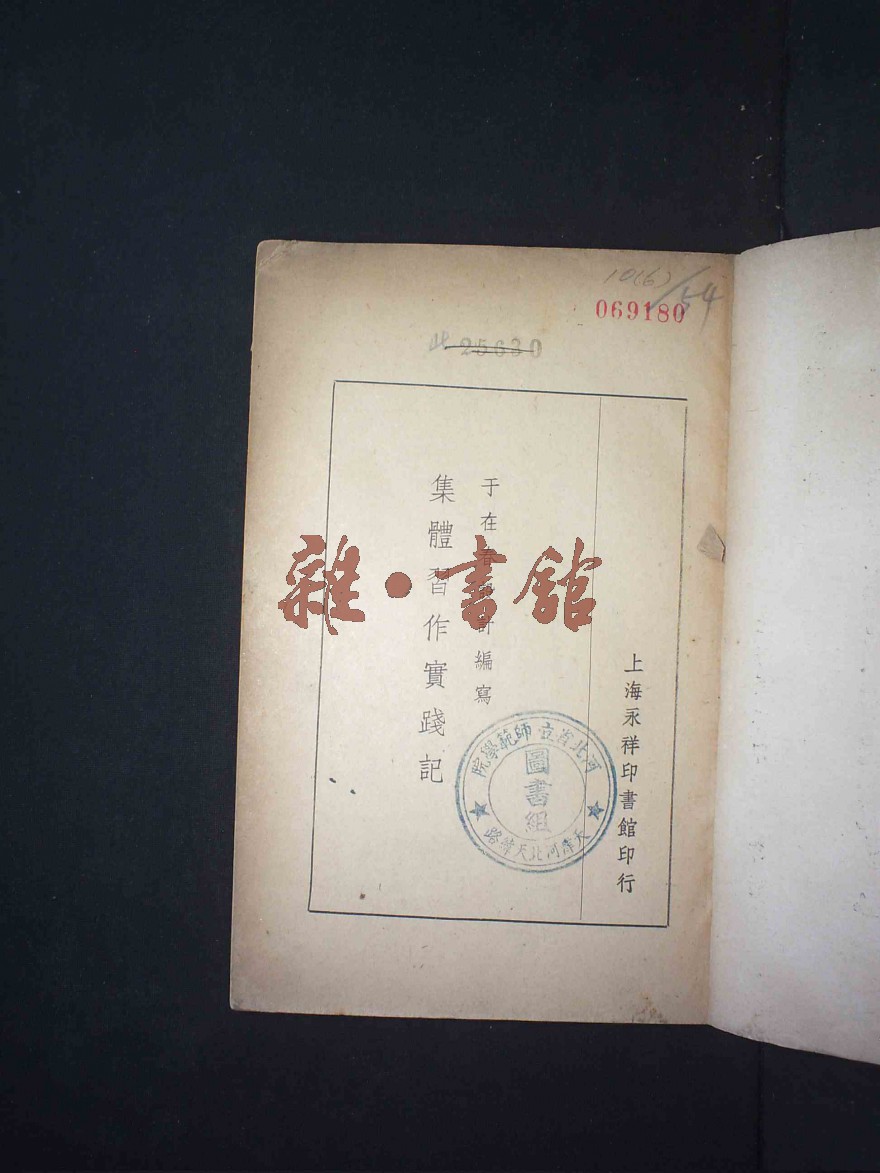 10(6)/54
069180
25630
上海永祥印書館印行
于在春設計編寫
集體習作實踐記
雜·書館
河北省立師範學院
圖書組
天津河北天緯路